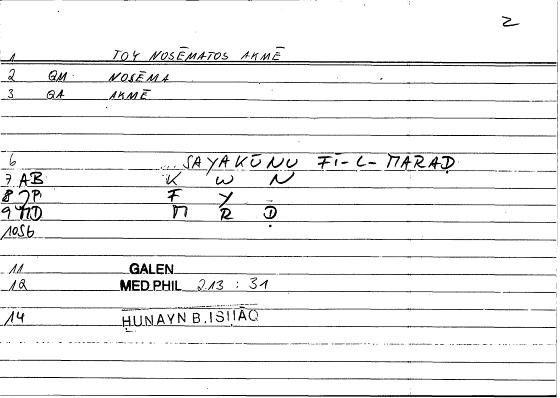 2
1 TOY NOSĒMATOS AKMĒ
2 QM NOSĒMA
3 QA AKMĒ
6 ... SAYAKŪNU FĪ-L-MARAḌ
7 AB K W N
8 JP F Y
9 MD M R Ḍ
10 SB
11 GALEN
12 MED.PHIL 213 : 31
14 ḤUNAYN B.ISḤĀQ